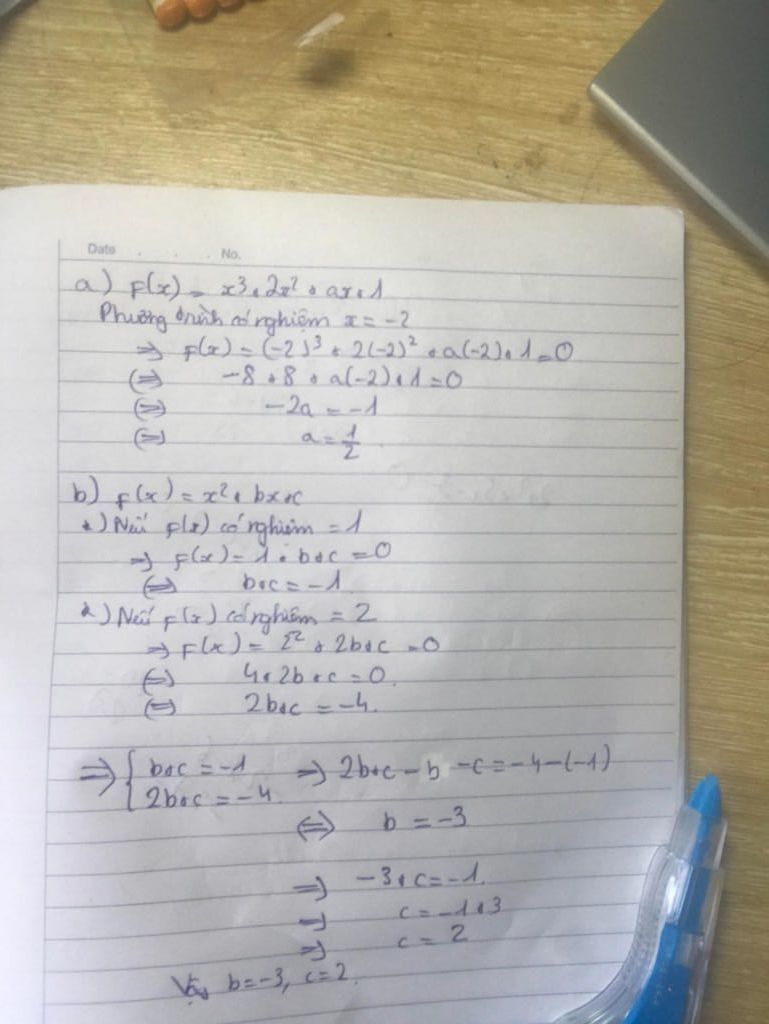 Date . . . No.
a) F(x) = x³ + 2x² + ax + 1
Phương trình có nghiệm x = -2
=> F(x) = (-2)³ + 2(-2)² + a(-2) + 1 = 0
(=) -8 + 8 + a(-2) + 1 = 0
(=) -2a = -1
(=) a = 1/2
b) F(x) = x² + bx + c
+) Nếu F(x) có nghiệm = 1
=> F(x) = 1 + b + c = 0
(=) b + c = -1
+) Nếu F(x) có nghiệm = 2
=> F(x) = 2² + 2b + c = 0
(=) 4 + 2b + c = 0.
(=) 2b + c = -4.
=> { b + c = -1 => 2b + c - b - c = -4 - (-1)
2b + c = -4.
(=) b = -3
=> -3 + c = -1.
=> c = -1 + 3
=> c = 2
Vậy b = -3, c = 2.